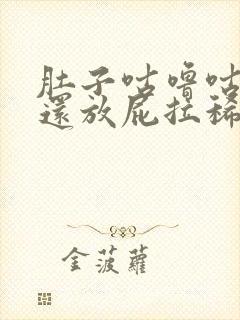 肚子咕嚕咕
還放屁拉稀
金菠蘿